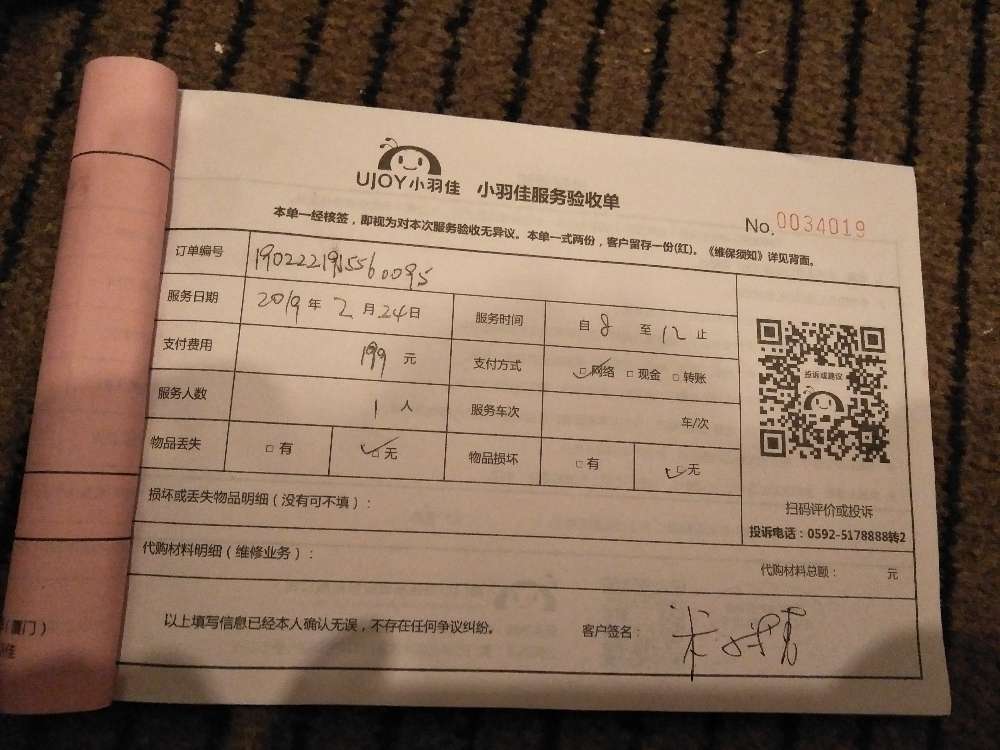 UJOY小羽佳 小羽佳服务验收单
No.0034019
本单一经核签，即视为对本次服务验收无异议。本单一式两份，客户留存一份(红)。《维保须知》详见背面。
订单编号 1902221915560095
服务日期 2019年2月24日 服务时间 自8至12止
支付费用 199元 支付方式 □网络 □现金 □转账
服务人数 1人 服务车次 车/次
物品丢失 □有 □无 物品损坏 □有 □无
投诉或建议
扫码评价或投诉
投诉电话：0592-5178888转2
损坏或丢失物品明细（没有可不填）：
代购材料明细（维修业务）：
代购材料总额： 元
以上填写信息已经本人确认无误，不存在任何争议纠纷。 客户签名：
(厦门)